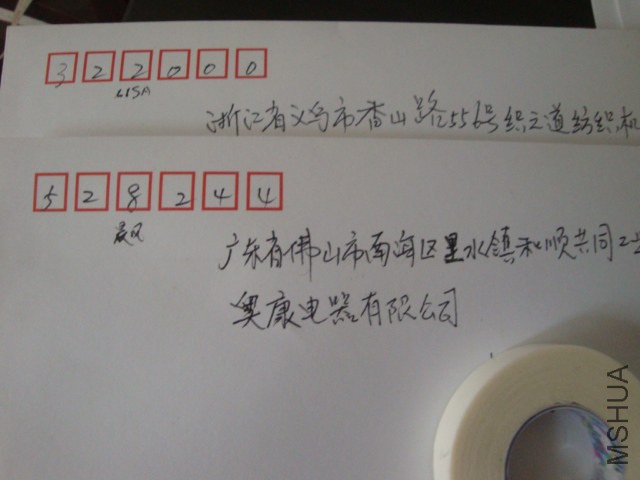 322000
LISA
浙江省义乌市香山路556号织之道纺织机
528244
广东省佛山市南海区里水镇和顺共同工业
奥康电器有限公司
MSHUA